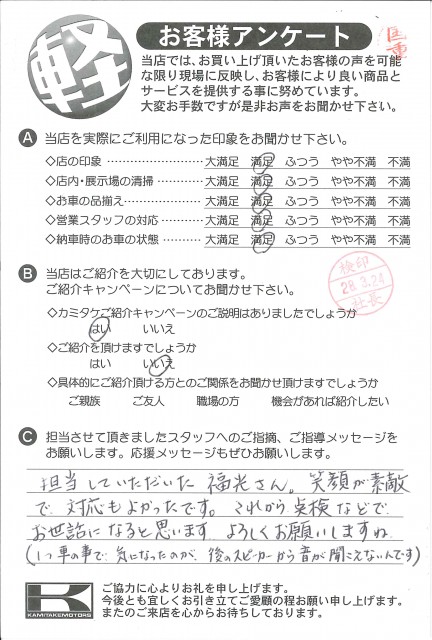 軽
お客様アンケート
当店では、お買い上げ頂いたお客様の声を可能
な限り現場に反映し、お客様により良い商品と
サービスを提供する事に努めています。
大変お手数ですが是非お声をお聞かせ下さい。
A 当店を実際にご利用になった印象をお聞かせ下さい。
◇店の印象 ………………… 大満足 満足 ふつう やや不満 不満
◇店内・展示場の清掃 ………… 大満足 満足 ふつう やや不満 不満
◇お車の品揃え ……………… 大満足 満足 ふつう やや不満 不満
◇営業スタッフの対応 ………… 大満足 満足 ふつう やや不満 不満
◇納車時のお車の状態 ………… 大満足 満足 ふつう やや不満 不満
B 当店はご紹介を大切にしております。
ご紹介キャンペーンについてお聞かせ下さい。
検印
28.3.24
社長
◇カミタケご紹介キャンペーンのご説明はありましたでしょうか
はい いいえ
◇ご紹介を頂けますでしょうか
はい いいえ
◇具体的にご紹介頂ける方とのご関係をお聞かせ頂けますでしょうか
ご親族 ご友人 職場の方 機会があれば紹介したい
C 担当させて頂きましたスタッフへのご指摘、ご指導メッセージを
お願いします。応援メッセージもぜひお願いします。
担当していただいた 福光さん。笑顔が素敵
で 対応もよかったです。これから点検などで
お世話になると思います よろしくお願いしますね
(1つ車の事で 気になったのが、後のスピーカーから音が聞こえないんです)
K
KAMITAKEMOTORS
ご協力に心よりお礼を申し上げます。
今後とも宜しくお引き立てご愛顧の程お願い申し上げます。
またのご来店を心からお待ちしております。